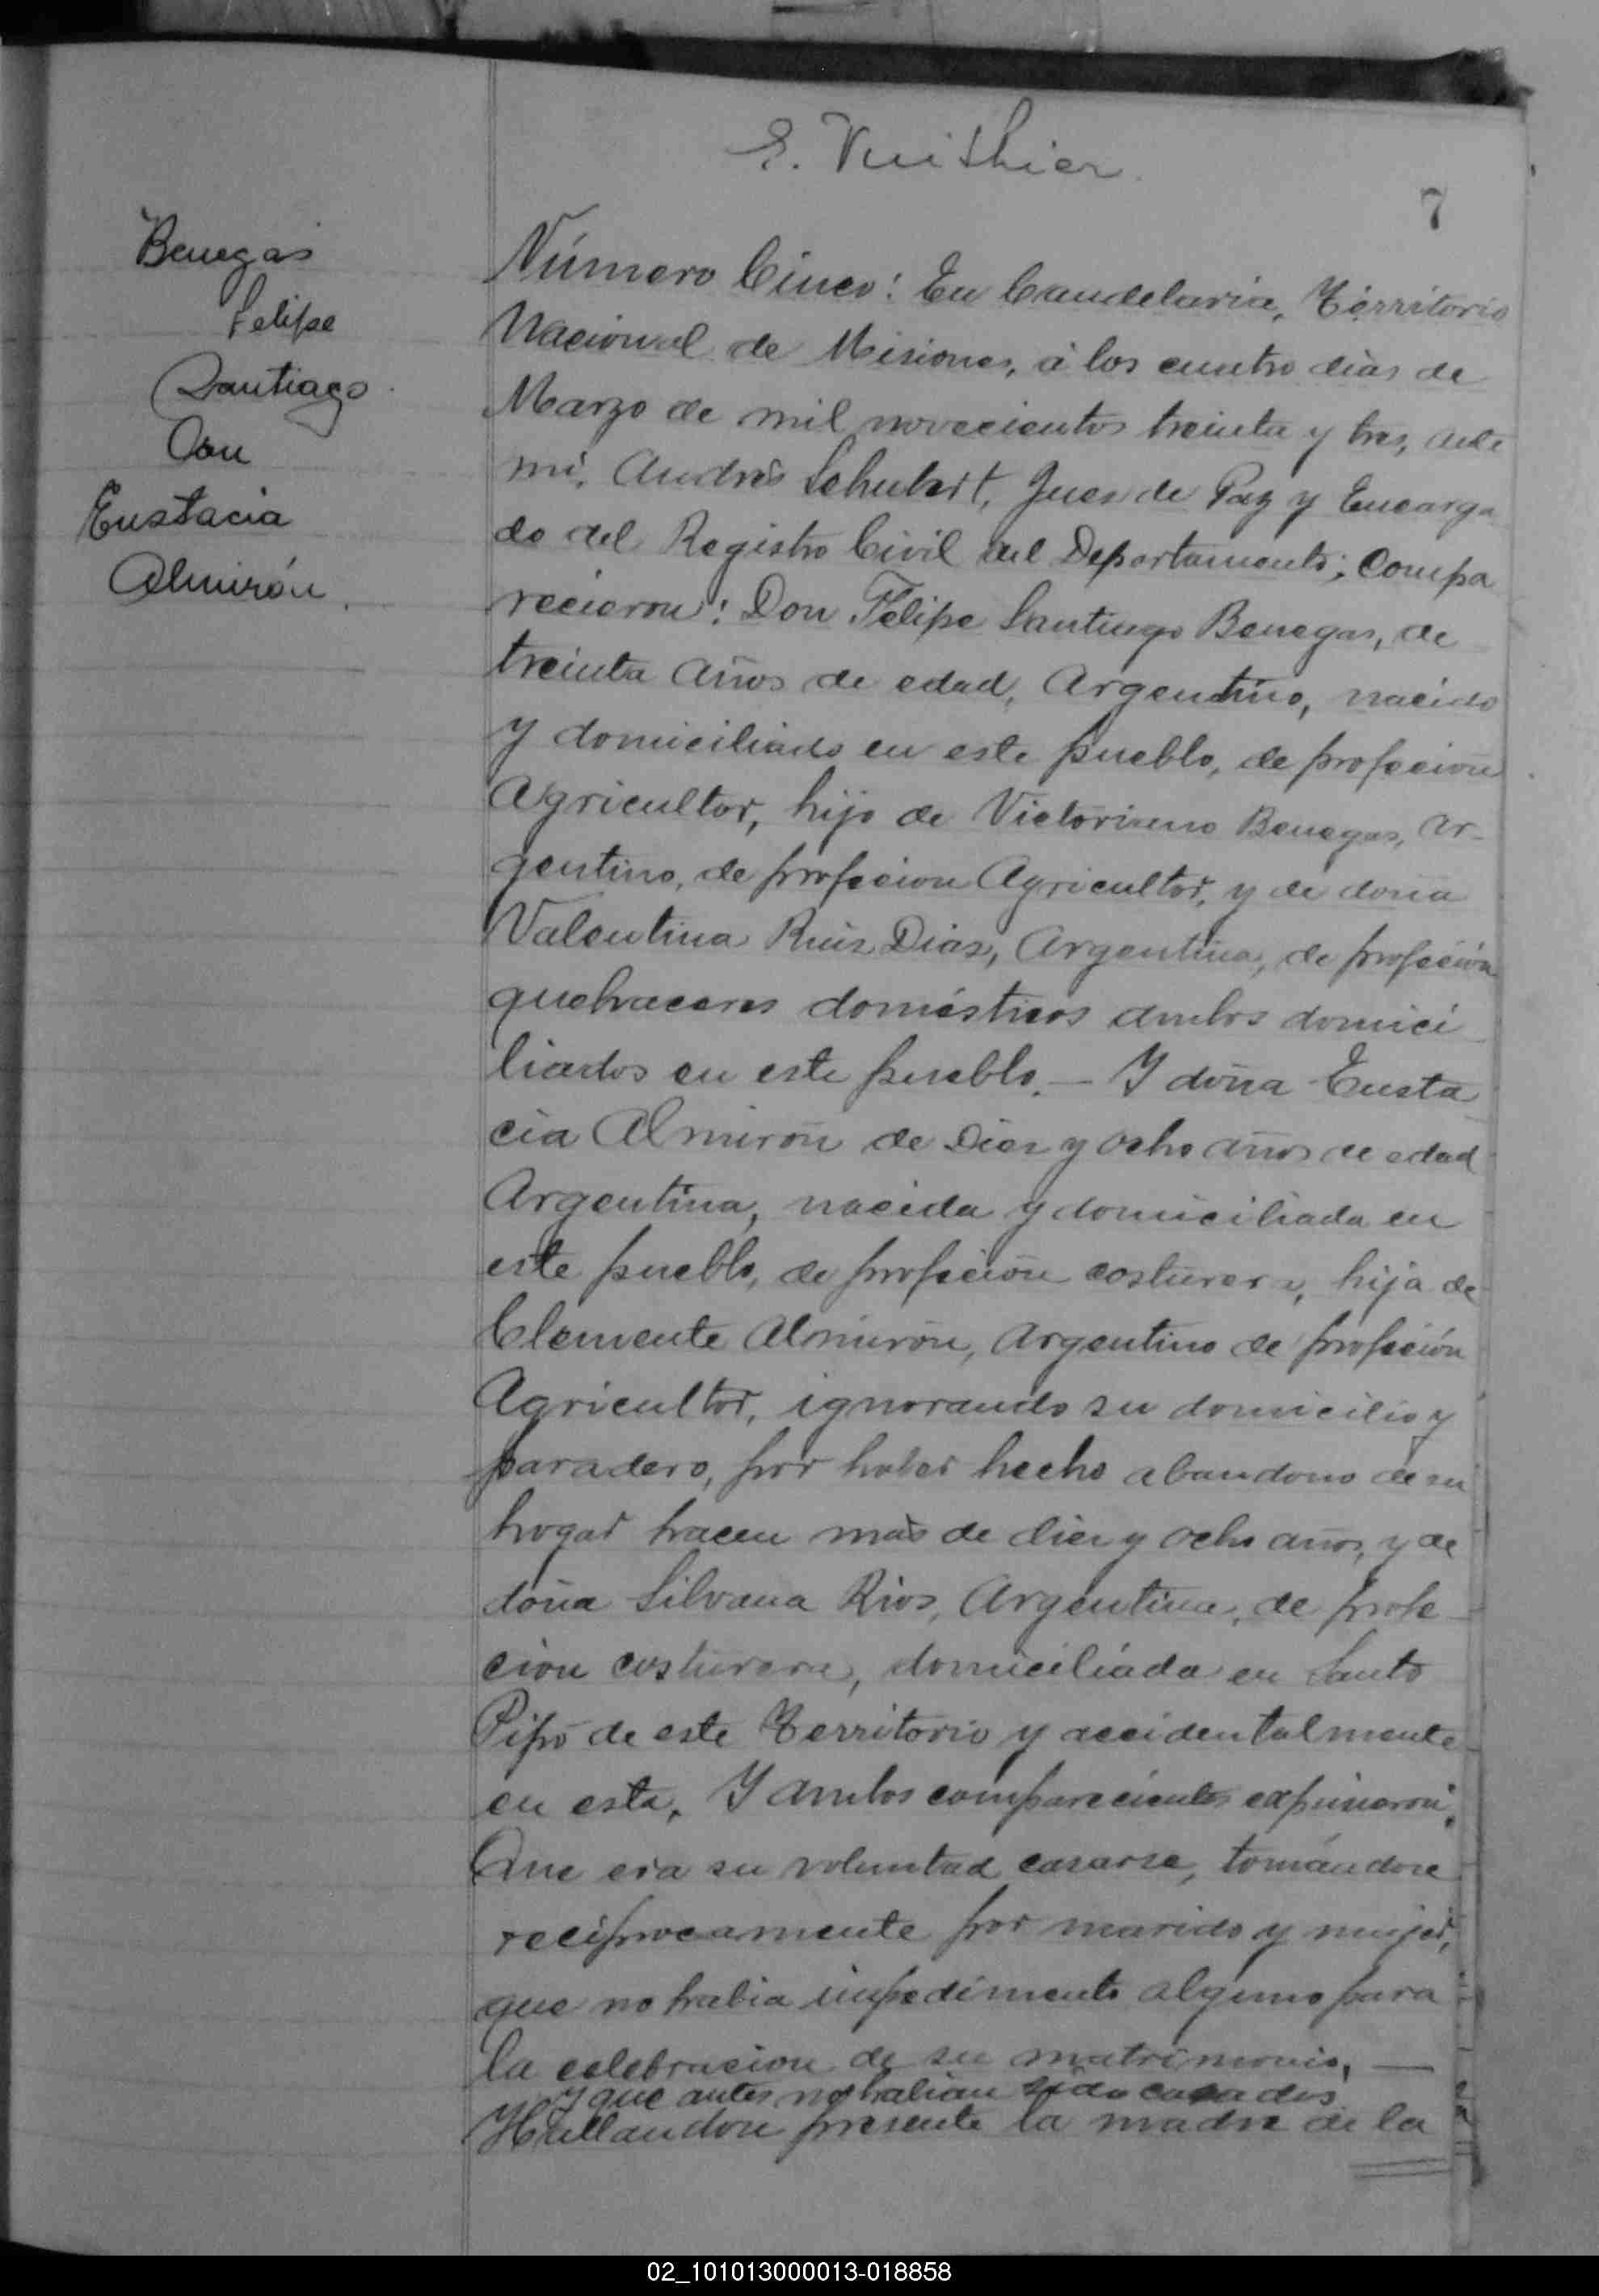 E. Vuithier
7
Benegas
Felipe
Santiago
Con
Eustacia
Almirón
Número Cinco: En Candelaria, Territorio
Nacional de Misiones, á los cuatro dias de
Marzo de mil novecientos treinta y tres, ante
mi, Andrés Schubert, Jues de Paz y Encarga
do del Registro Civil del Departamento; Compa
recieron: Don Felipe Santiago Benegas, de
treinta años de edad, Argentino, nacido
y domiciliado en este pueblo, de profeción
Agricultor, hijo de Victoriano Benegas, Ar-
gentino, de profecion Agricultor, y de doña
Valentina Ruis Dias, Argentina, de profeción
quehaceres domésticos ambos domici
liados en este pueblo. — Y doña Eusta
cia Almirón de Dies y ocho años de edad
Argentina, nacida y domiciliada en
este pueblo, de profeción costurera, hija de
Clemente Almirón, Argentino de profeción
Agricultor, ignorando su domicilio y
paradero, por haber hecho abandono de su
hogar hacen más de dies y ocho años, y de
doña Silvana Rios, Argentina, de profe
ción costurera, domiciliada en Santo
Pipó de este Territorio y accidentalmente
en esta. Y ambos comparecientes expusieron:
Que era su voluntad casarse, tomándose
reciprocamente por marido y mujer,
que no habia impedimento alguno para
la celebracion de su matrimonio, —
y que antes no habian sido casados
Hallandose presente la madre de la
02_101013000013-018858